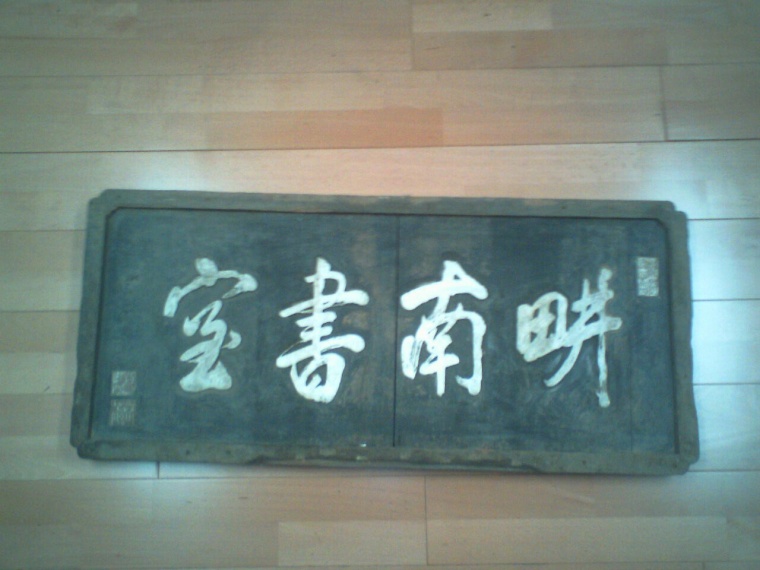 畊南書室